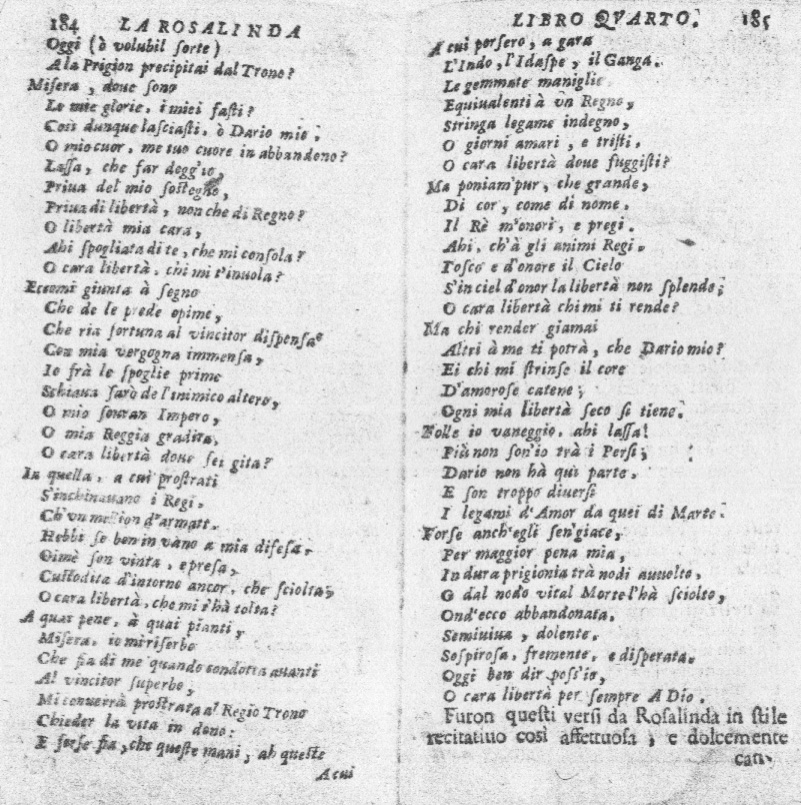 184 LA ROSALINDA
Oggi (ò volubil ſorte)
A la Prigion precipitai dal Trono?
Miſera, doue ſono
Le mie glorie, i miei faſti?
Così dunque laſciaſti, ò Dario mio,
O mio cuor, me tuo cuore in abbandono?
Laſſa, che far degg'io,
Priua del mio ſoſtegno,
Priua di libertà, non che di Regno?
O libertà mia cara,
Ahi ſpogliata di te, che mi conſola?
O cara libertà, chi mi t'inuola?
Eccomi giunta à ſegno
Che de le prede opime,
Che ria fortuna al vincitor diſpenſa
Con mia vergogna immenſa,
Io frà le ſpoglie prime
Schiaua ſarò de l'inimico altero,
O mio ſouran Impero,
O mia Reggia gradita,
O cara libertà doue ſei gita?
In quella, a cui proſtrati
S'inchinauano i Regi,
Ch'vn million d'armati
Hebbi ſe ben in vano a mia difeſa,
Oimè ſon vinta, e preſa,
Cuſtodita d'intorno ancor, che ſciolta,
O cara libertà, che mi t'hà tolta?
A quai pene, à quai pianti,
Miſera, io mi riſerbo
Che fia di me quando condotta auanti
Al vincitor ſuperbo,
Mi conuerrà proſtrata al Regio Trono
Chieder la vita in dono:
E forſe fia, che queſte mani, ah queſte
A cui
LIBRO QVARTO. 185
A cui porſero, a gara
L'Indo, l'Idaſpe, il Ganga.
Le gemmate maniglie
Equiualenti à vn Regno,
Stringa legame indegno,
O giorni amari, e triſti.
O cara libertà doue fuggiſti?
Ma poniam'pur, che grande,
Di cor, come di nome.
Il Rè m'onori, e pregi.
Ahi, ch'à gli animi Regi.
Toſco e d'onore il Cielo
S'in ciel d'onor la libertà non ſplende;
O cara libertà chi mi ti rende?
Ma chi render giamai
Altri à me ti potrà, che Dario mio?
Ei chi mi ſtrinſe il core
D'amoroſe catene;
Ogni mia libertà ſeco ſi tiene.
Folle io vaneggio, ahi laſſa!
Più non ſon'io trà i Perſi;
Dario non hà qui parte.
E ſon troppo diuerſi
I legami d'Amor da quei di Marte.
Forſe anch'egli ſen'giace,
Per maggior pena mia,
In dura prigionia trà nodi auuolto,
O dal nodo vital Morte l'hà ſciolto,
Ond'ecco abbandonata.
Semiuiua, dolente.
Soſpiroſa, fremente, e diſperata.
Oggi ben dir poſs'io,
O cara libertà per ſempre A Dio.
Furon queſti verſi da Roſalinda in ſtile
recitatiuo così affettuoſa, e dolcemente
can-